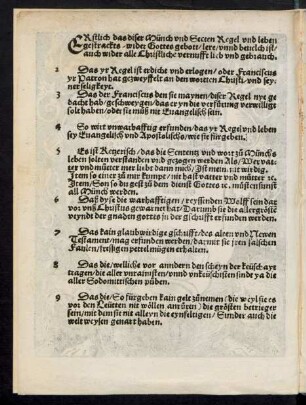 ERstlich das diser Münch vnd Secten Regel vnd leben
gestrackts wider Gottes gebott/ lere/ vnnd
auch wider alle Christliche vernufft lieb vnd gebrauch.
2 Das yr Regel ist erdicht vnd erlogen/ oder Franciscus
yr Patron hat gezweyffelt an den wortten Christi/ vnd sey-
ner seligkeyt.
3 Das der Franciscus den sie maynen/ diser Regel nye ge
dacht hab/ geschweygen/ das er yn die verfürung verwilligt
solt haben/ oder sie müß nit Euangelisch sein.
4 So wirt vnwarhafftig erfunden/ das yr Regel vnd leben
sey Euangelisch vnd Apostolisch/ wie sie fürgeben.
5 Es ist Ketzersch/ das die Sententz vnd wort zů Münchs
leben solten verstanden vnd gezogen werden Als/ Wer vat-
ter vnd mütter mer lieb dann mich/ Ist mein nit wirdig.
Item so einer zů mir kumpt/ vnd hast vatter vnd mütter ec.
Item/ Son du gest zů dem dienst Gottes ec. müsten sunst
all Münch werden.
6 Das dy sie die warhafftigen reyssenden Wolff sein dar
vor vnß Christus gewarnet hat/ Darumb sie die allergröste
veyndt der gnaden gottes in der gschrifft erfunden werden.
7 Das kain glaubwirdige gschrifft/ des alten vnd Newen
Testament/ mag erfunden werden/ darmit sie jren
faulen/ fressigen pettel mügen erhalten.
8 Das die/ welliche vor anndern den scheyn der keüscheyt
tragen/ die aller vnrainisten/ vnd vnkeüschisten sind ya die
aller Sodomittischen püben.
9 Das die/ So fürgeben kain gelt zůnemen/ die weyl sie es
vor den Leütten nit wöllen anrüren/ die grösten betrieger
sein/ mit dem sie nit alleyn die eynfeltigen/ Sunder auch die
welt weysen genart haben.